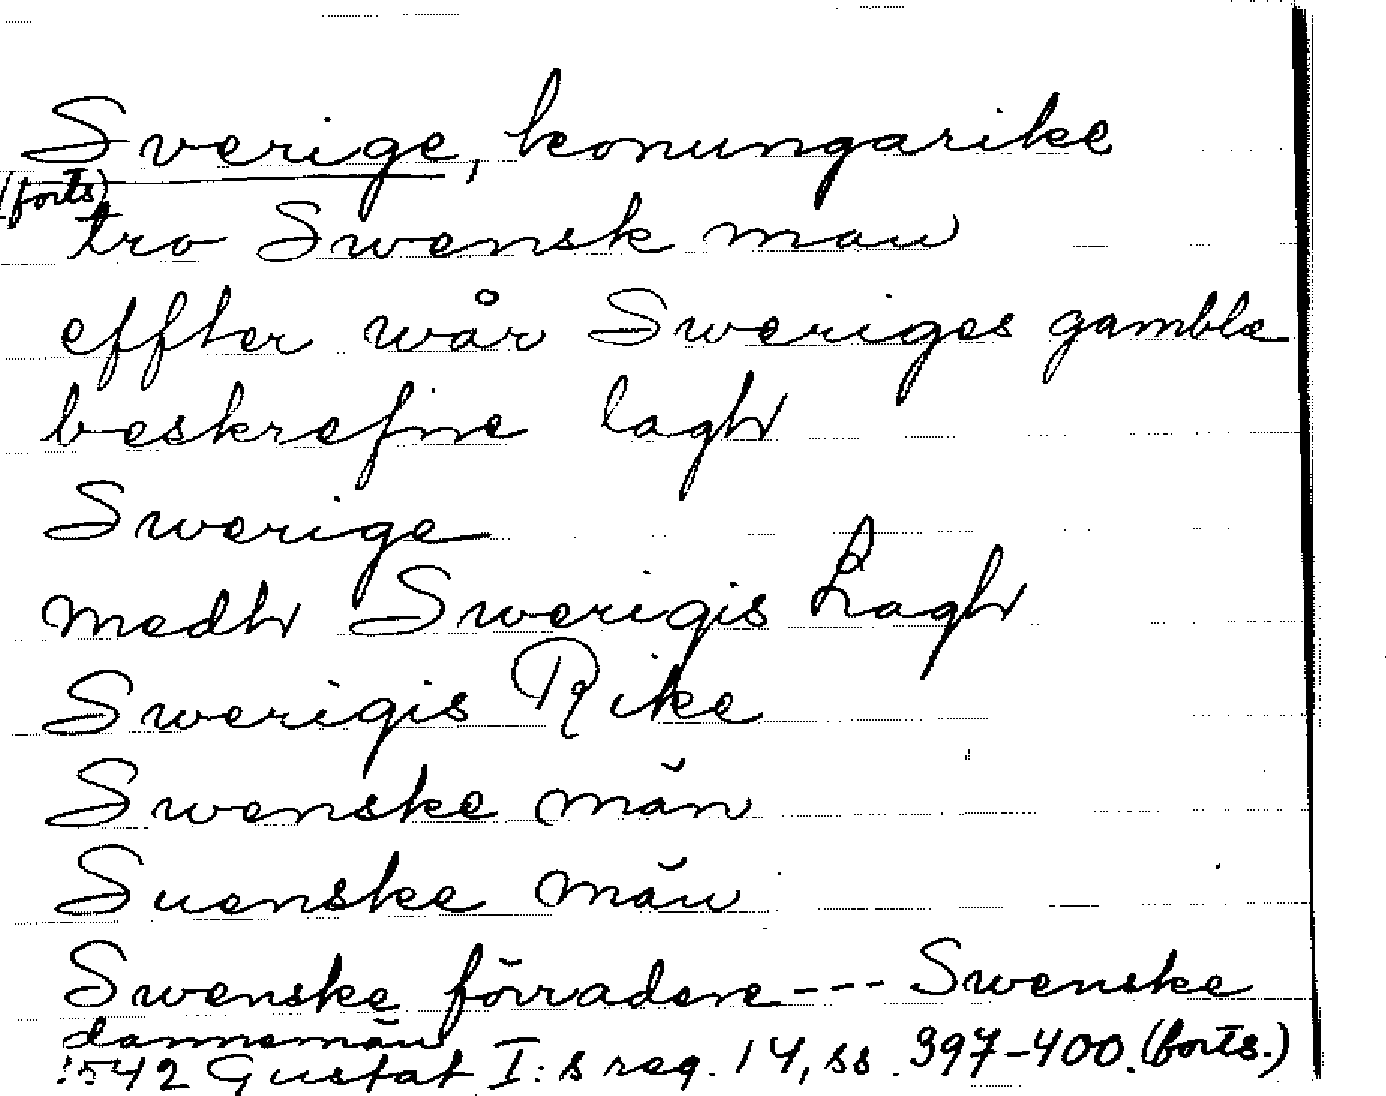 Sverige, konungarike
(forts)
tro Swensk man
effter wår Sweriges gamble
beskrefne lagh
Swerige
medh Swerigis Lagh
Swerigis Rike
Swenske män
Suenske män
Swenske förrädere --- Swenske
dannemän
1542 Gustaf I:s reg. 14, ss. 397-400. (forts.)